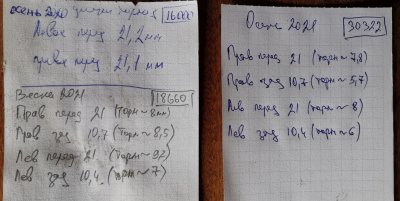 осень 2020 задние тормоз 16000
Левое перед 21,2 мм
правое перед 21,1 мм
Весна 2021 18660
Прав перед 21 (торм ~ 8 мм)
Прав зад 10,7 (торм ~ 8,5)
Лев перед 21 (торм ~ 9,2)
Лев зад 10,4 (торм ~ 7)
Осень 2021 30322
Прав перед 21 (торм ~ 7,8)
Прав зад 10,7 (торм ~ 5,7)
Лев перед 21 (торм ~ 8)
Лев зад 10,4 (торм ~ 6)